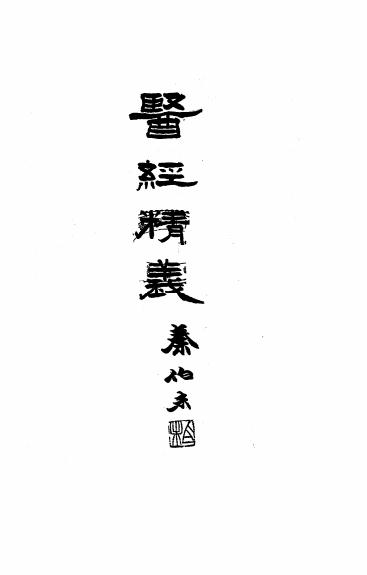 醫經精義
秦伯未